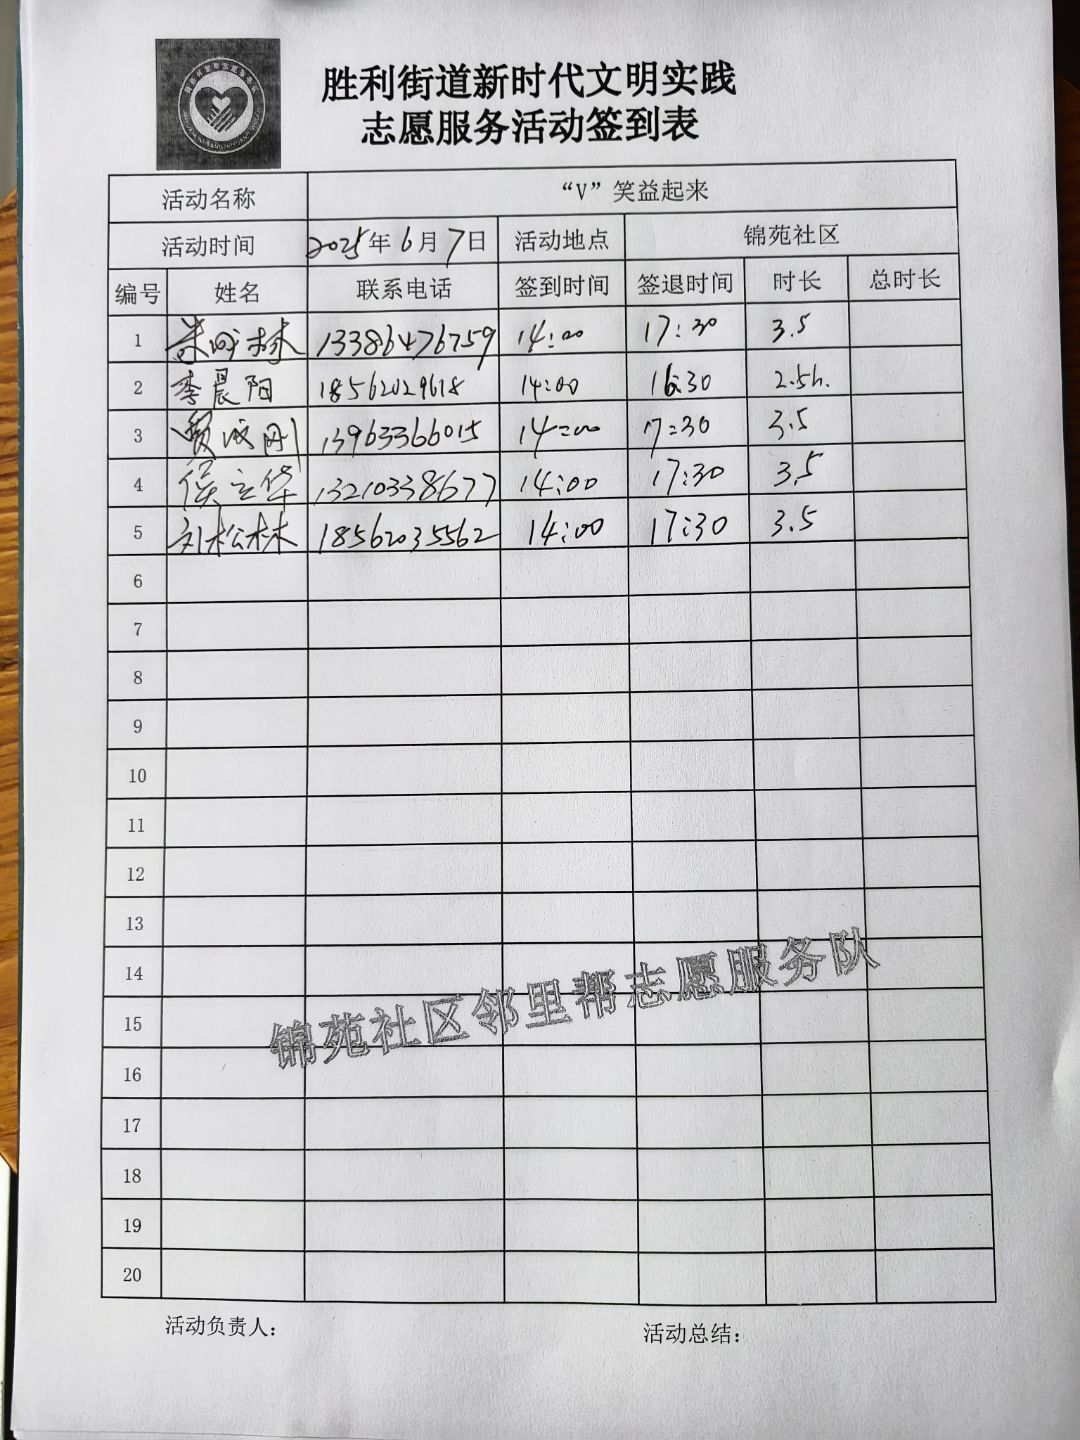 胜利街道新时代文明实践
志愿服务活动签到表
活动名称 “V”笑益起来
活动时间 2025年6月7日 活动地点 锦苑社区
编号 姓名 联系电话 签到时间 签退时间 时长 总时长
1 林 13386476759 14:00 17:30 3.5
2 李晨阳 18562029618 14:00 16:30 2.5h.
3 贺成刚 13963366015 14:00 17:30 3.5
4 侯立华 13210338677 14:00 17:30 3.5
5 刘松林 18562035562 14:00 17:30 3.5
6
7
8
9
10
11
12
13
14
15
16
17
18
19
20
锦苑社区邻里帮志愿服务队
活动负责人: 活动总结: